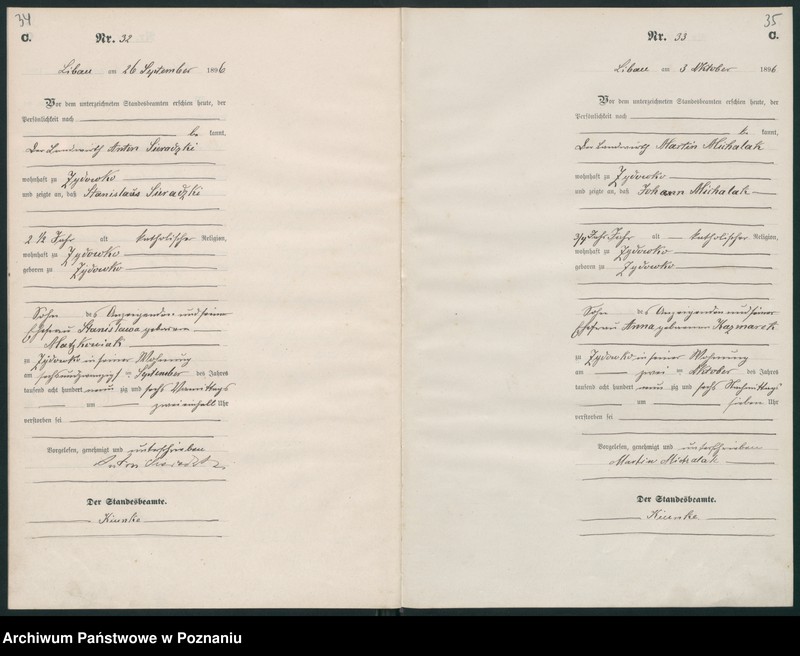 34
C.
Nr. 32
Libau am 26 September 1896
Vor dem unterzeichneten Standesbeamten erschien heute, der
Persönlichkeit nach
be kannt,
Der Landwirth Anton Sieradzki
wohnhaft zu Zydowko
und zeigte an, daß Stanislaus Sieradzki
2 ½ Jahr alt katholischer Religion,
wohnhaft zu Zydowko
geboren zu Zydowko
Sohn des Anzeigenden und seiner
Ehefrau Stanislawa geborenen
Matzkowiak
zu Zydowko in seiner Wohnung
am sechsundzwanzigsten September des Jahres
tausend acht hundert neun zig und sechs Vormittags
um zweieinhalb Uhr
verstorben sei
Vorgelesen, genehmigt und unterschrieben
Anton Sieradzki
Der Standesbeamte.
35
C.
Nr. 33
Libau am 3 Oktober 1896
Vor dem unterzeichneten Standesbeamten erschien heute, der
Persönlichkeit nach
be kannt,
Der Landwirth Martin Michalak
wohnhaft zu Zydowko
und zeigte an, daß Johann Michalak
3/4 Jahr alt katholischer Religion,
wohnhaft zu Zydowko
geboren zu Zydowko
Sohn des Anzeigenden und seiner
Ehefrau Anna geborenen Kazmarek
zu Zydowko in seiner Wohnung
am zwei ten Oktober des Jahres
tausend acht hundert neun zig und sechs Nachmittags
um sieben Uhr
verstorben sei
Vorgelesen, genehmigt und unterschrieben
Martin Michalak
Der Standesbeamte.
Archiwum Państwowe w Poznaniu